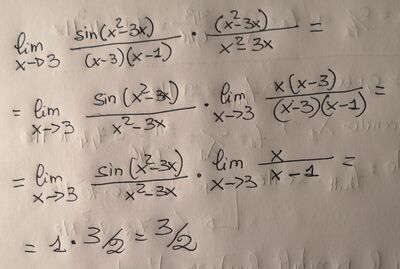 lim x→3 sin(x²-3x)/(x-3)(x-1) · (x²-3x)/x²-3x =
= lim x→3 sin(x²-3x)/x²-3x · lim x→3 x(x-3)/(x-3)(x-1) =
= lim x→3 sin(x²-3x)/x²-3x · lim x→3 x/x-1 =
= 1 · 3/2 = 3/2